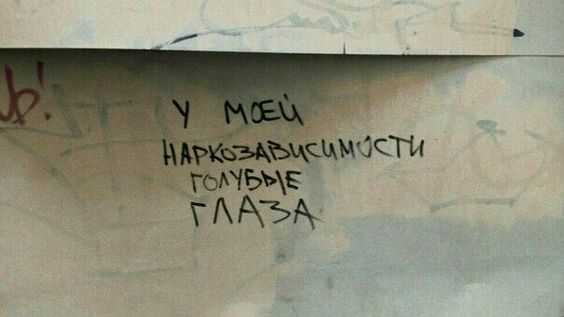 Ь!
У МОЕЙ
НАРКОЗАВИСИМОСТИ
ГОЛУБЫЕ
ГЛАЗА